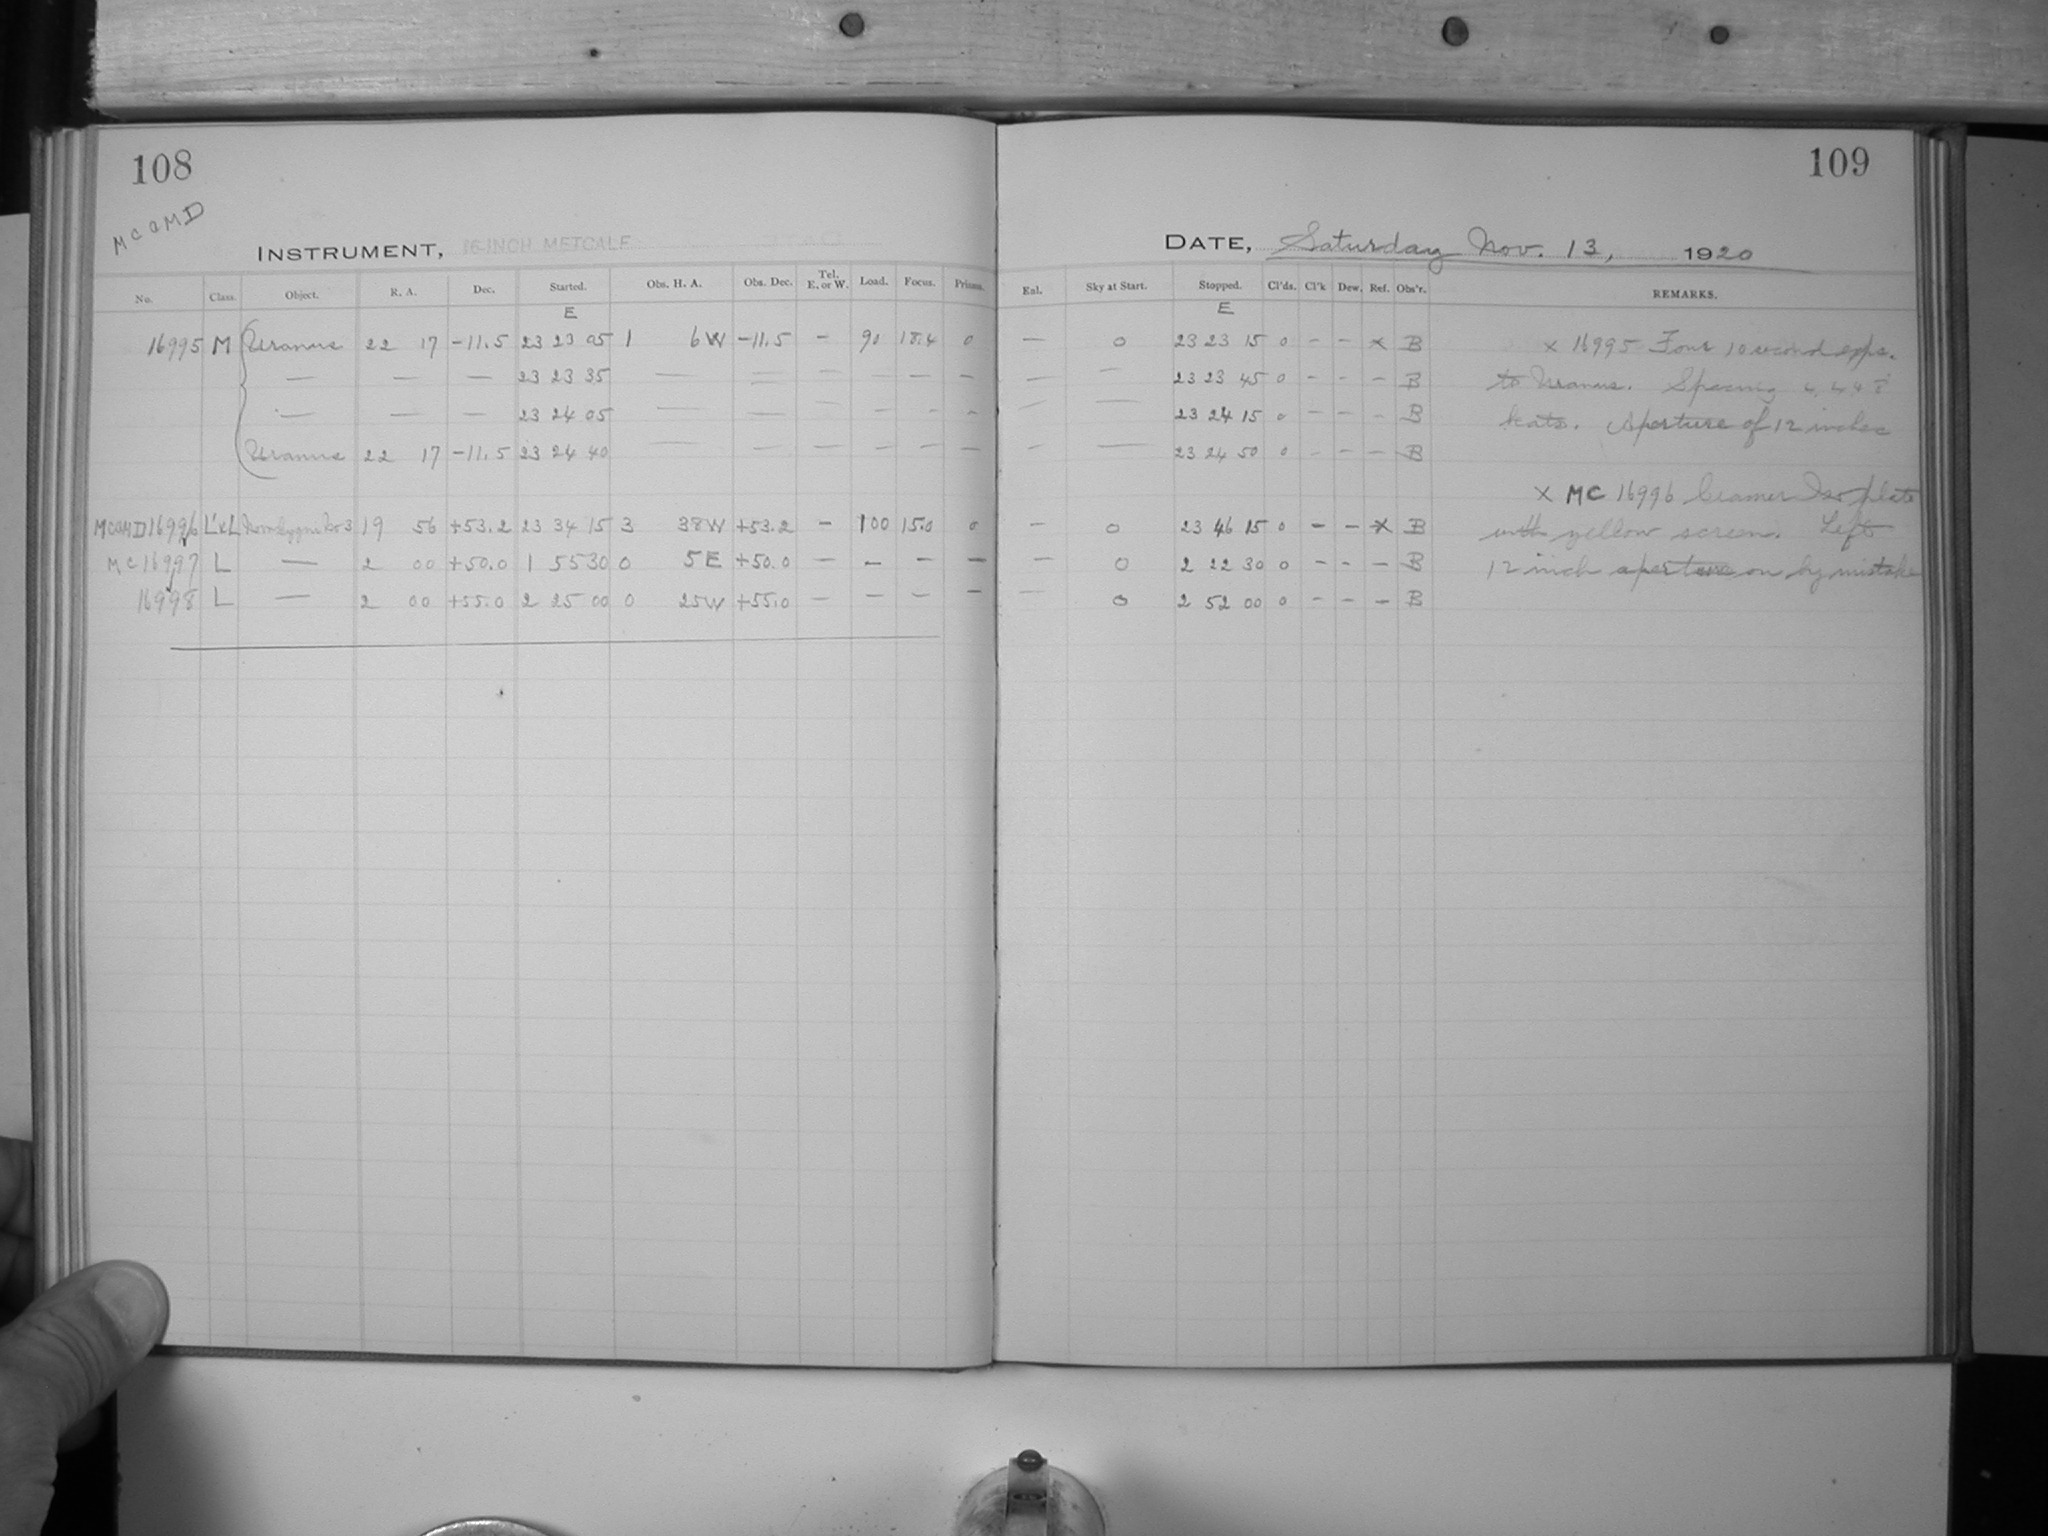 108
109
MC a MD
INSTRUMENT, 16-INCH METCALF
DATE, Saturday Nov. 13, 1920
No. Class. Object. R. A. Dec. Started. Obs. H. A. Obs. Dec. Tel. E. or W. Load. Focus. Prisms. Enl. Sky at Start. Stopped. Cl'ds. Cl'k Dew. Ref. Obs'r. REMARKS.
E E
16995 M Uranus 22 17 -11.5 23 23 05 1 6W -11.5 - 90 18.4 0 - 0 23 23 15 0 - - x B
— — — 23 23 35 — — — — — — — — 23 23 45 0 - - - B
— — — 23 24 05 — — — — — — — — 23 24 15 0 - - - B
Uranus 22 17 -11.5 23 24 40 — — — — — — — — 23 24 50 0 - - - B
MCaMD 16996 L'xL No 3 19 56 +53.2 23 34 15 3 38W +53.2 - 100 15.0 0 - 0 23 46 15 0 - - x B
MC 16997 L — 2 00 +50.0 1 55 30 0 5E +50.0 - - - - - 0 2 22 30 0 - - - B
16998 L — 2 00 +55.0 2 25 00 0 25W +55.0 - - - - - 0 2 52 00 0 - - - B
x 16995 Four 10 second exps.
to Uranus. Spacing 4, 4 & 8
beats. Aperture of 12 inches
x MC 16996 Cramer Iso plate
with yellow screen. Left
12 inch aperture on by mistake